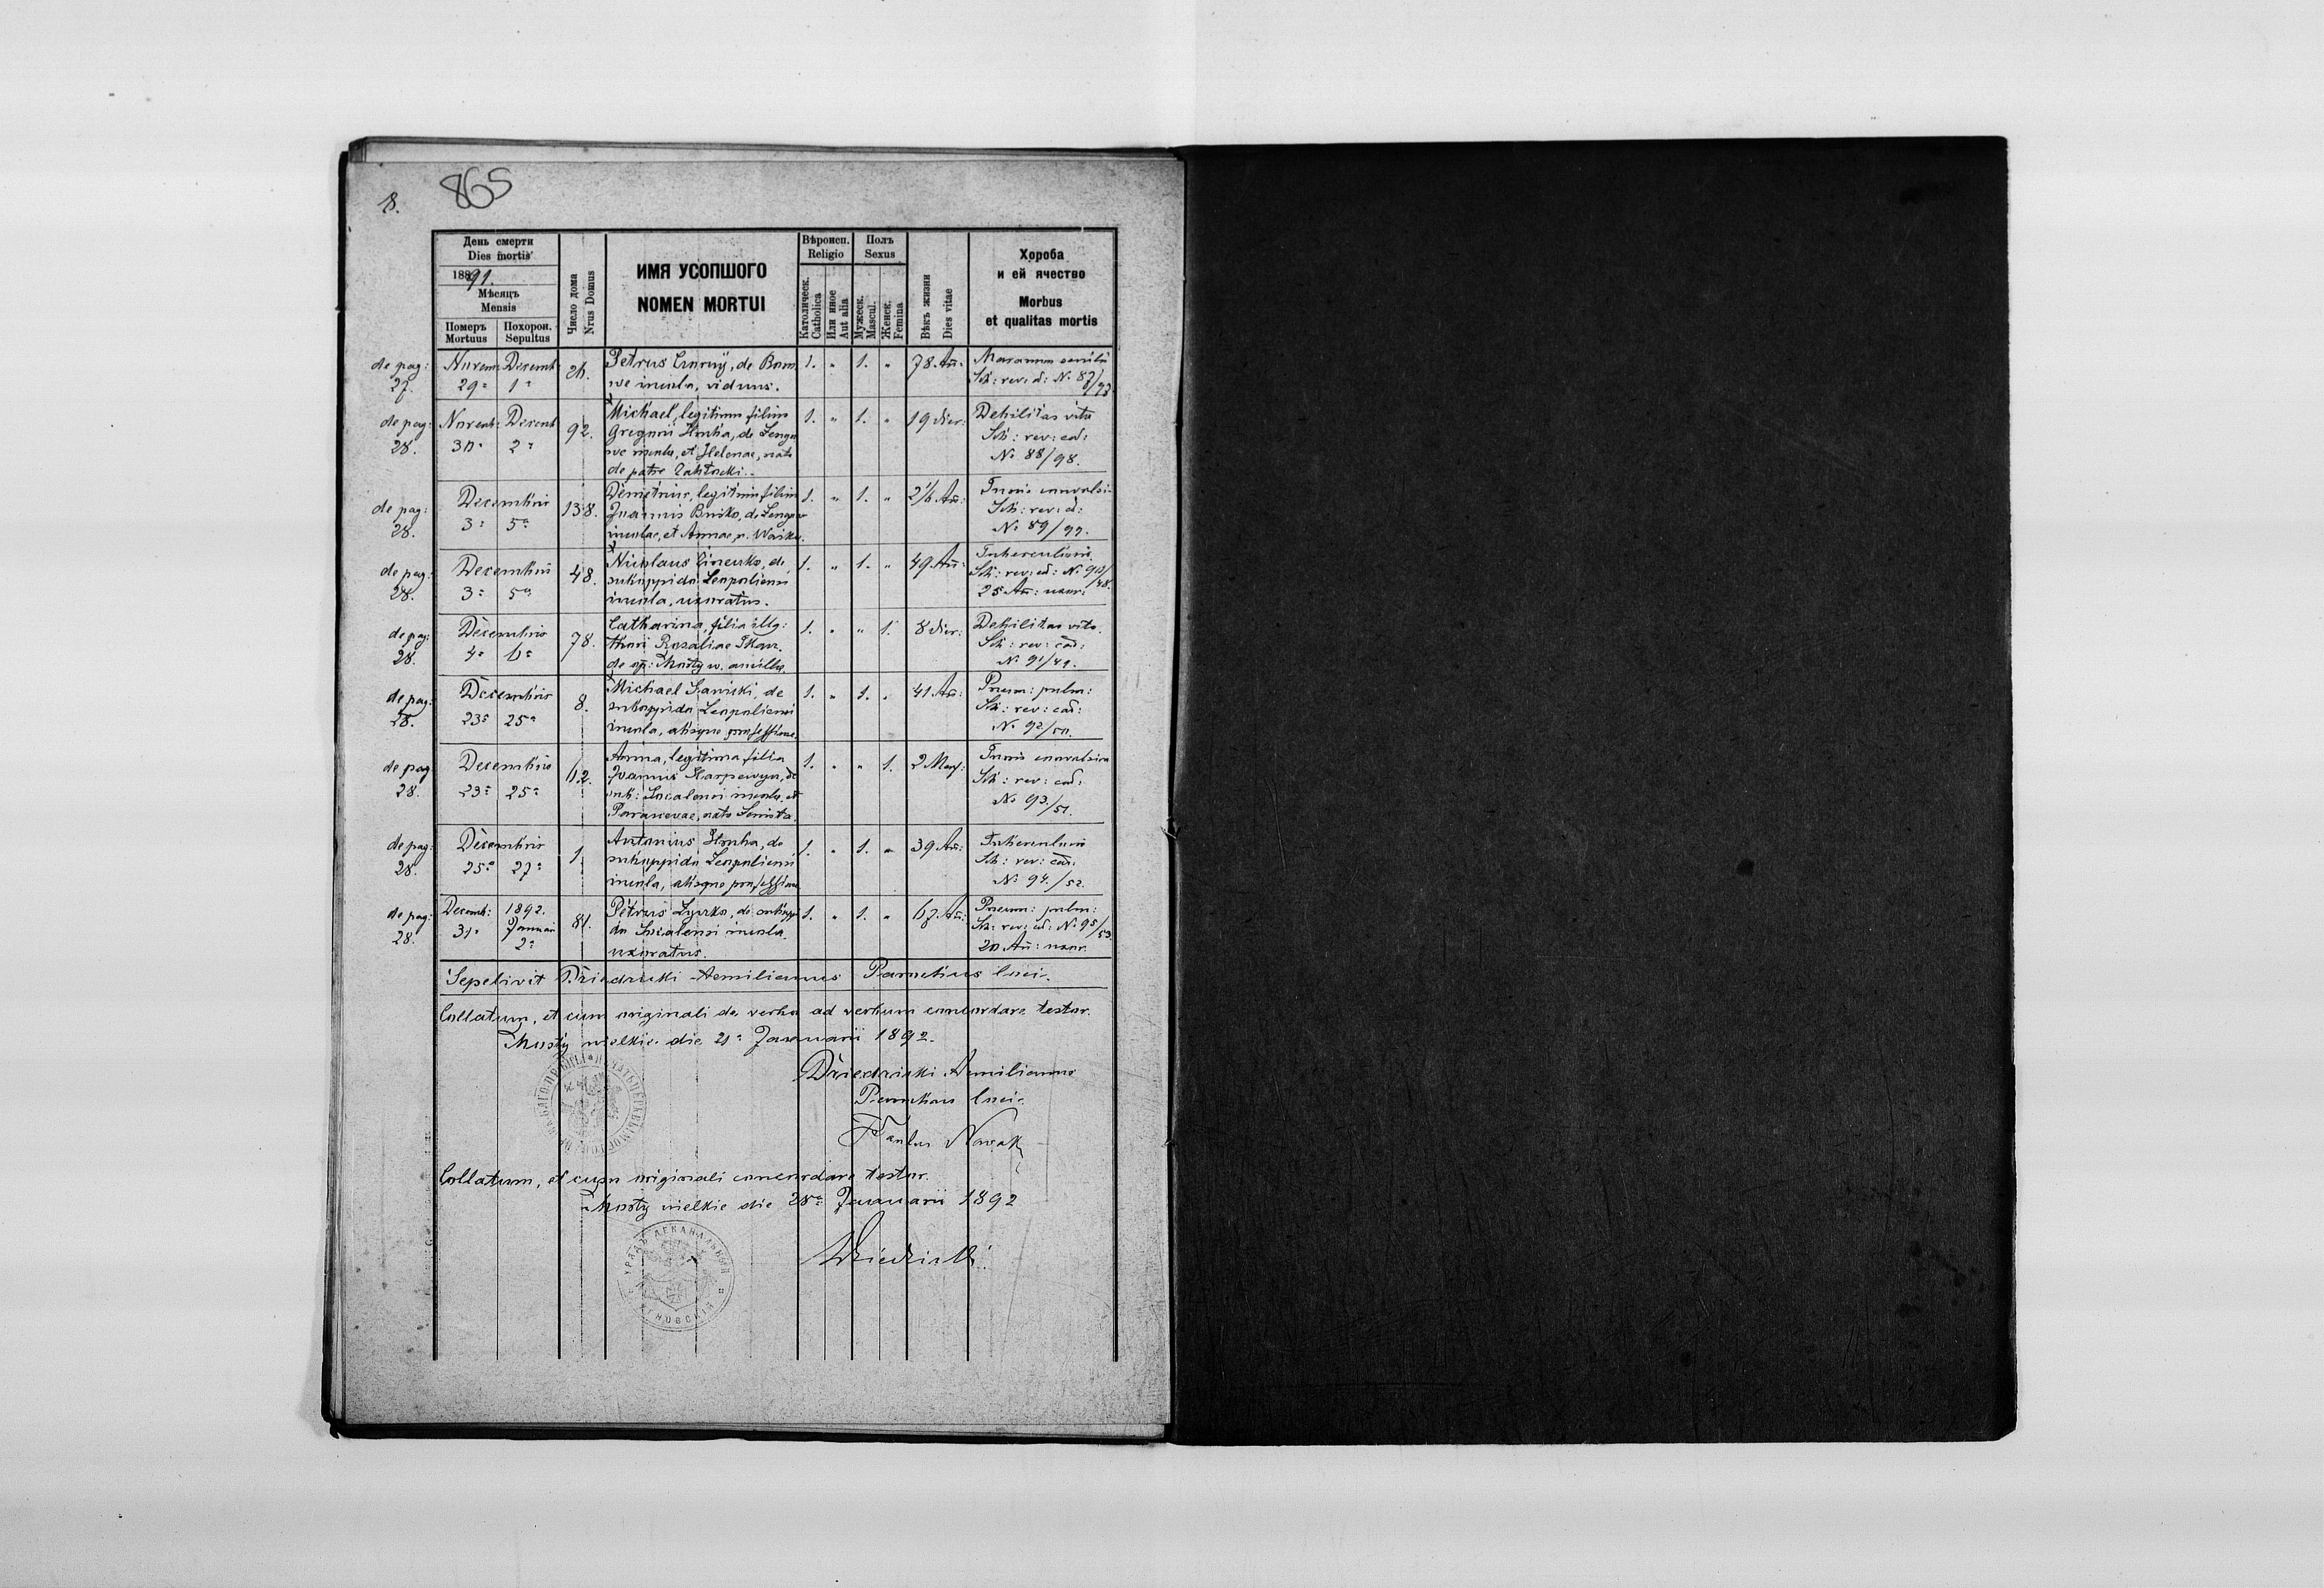 18.
865
День смерти
Dies mortis
1891.
Мѣсяцъ
Mensis
Померъ Mortuus
Похорон. Sepultus
Число дома
Nrus Domus
ИМЯ УСОПШОГО
NOMEN MORTUI
Вѣроисп.
Religio
Католическ.
Catholica
Или инное
Aut alia
Полъ
Sexus
Мужеск.
Mascul.
Женск.
Femina
Вѣкъ жизни
Dies vitae
Хороба
и ей ячество
Morbus
et qualitas mortis
de pag: 27.
Novem 29a Decemb 1a
26.
Petrus de
we incola, viduus.
1. " 1. "
78 An:
Marasmus senilis
Sch: rev: d: No 87/
de pag: 28.
Novemb: 30a Decemb 2a
92.
Michael, legitimus filius
Gregorii Hruba, de
we incolae, et Helenae, nata
de patre
1. " 1. "
19 dier:
Debilitas vita
Sch: rev: cad:
No 88/98.
de pag: 28.
Decembris
3a 5a
138.
Demetrius, legitimus filius
Joannis Busko, de
incolae, et Annae n. Wasko.
1. " 1. "
An:
Tussis convulsi
Sch: rev: d:
No 89/99.
de pag: 28.
Decembris
3a 5a
48.
Nicolaus de
suboppido Leopoliensi
incola, uxoratus.
1. " 1. "
49 An:
Tuberculosis
Sch: rev: cd: No 90/48.
25 An: uxor:
de pag: 28.
Decembris
4a 6a
78.
Catharina, filia illg:
thori Rosaliae
de op: Mosty w. ancillae
1. " " 1.
8 dier:
Debilitas vita.
Sch: rev: cad:
No 91/49.
de pag: 28.
Decembris
23a 25a
8.
Michael Sawicki, de
suboppido Leopoliensi
incola, absque professione.
1. " 1. "
41 An:
Pneum: pulm:
Sch: rev: cad:
No 92/50.
de pag 28.
Decembris
23a 25a
62.
Anna, legitima filia
Joannis de
sub: Socalensi incola, et
Parascevae, nata
1. " " 1.
2 Mens:
Tussis convulsiva
Sch: rev: cad:
No 93./51.
de pag: 28.
Decembris
25a 27a
1.
Antonius Hruba, de
suboppido Leopoliensi
incola, absque professione
1. " 1. "
39 An:
Tuberculosis
Sch: rev: cad:
No 94./52.
de pag: 28.
Decemb: 31a 1892. Januarii 2a
81.
Petrus Lysko, de subopp
do Socalensi incola
uxoratus.
1. " 1. "
67 An:
Pneum: pulm:
Sch: rev: cd: No 95/53.
20 An: uxor.
Sepelivit Dziedzicki Aemilianus Parochus loci.
Collatum, et cum originali de verbo ad verbum concordare testor.
Mosty wielkie die 21a Januarii 1892.
Dziedzicki Aemilianus
Parochus loci.
Paulus Nowak
Collatum, et cum originali concordare testor.
Mosty wielkie die 28a Januarii 1892
УРЯДЪ ДЕКАНАЛЬНЫЙ
Dziedzicki